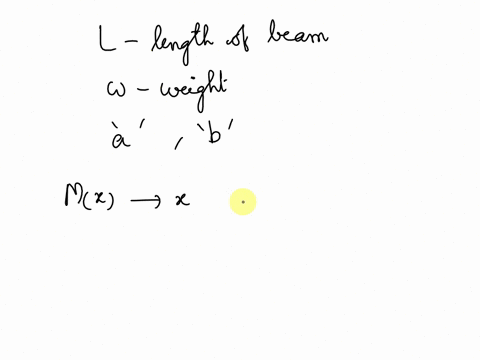 L - length of beam
ω - weight
'a' , 'b'
M(x) → x